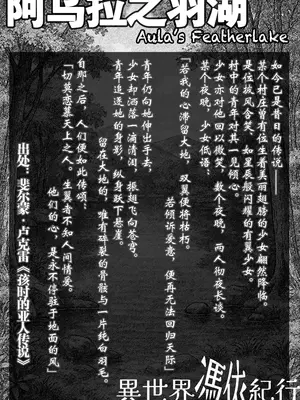 阿乌拉之羽湖
Aula's Featherlake
如今已是昔日的传说——
某个村庄曾有位生着美丽翅膀的少女翩然降临。
是位披风含笑、如星辰般闪耀的有翼少女。
村中的青年对其一见倾心。
少女亦对他回以微笑，数个夜晚，两人彻夜长谈。
某个夜晚，少女低语：
「若我的心滞留大地，双翼便将枯朽。
若倾诉爱意，便再无法回归天际」
青年仍向她伸出手去，
少女却洒落一滴清泪，振翅飞向苍穹。
青年追逐她的身影，纵身跃下悬崖。
留在大地的，唯有碎裂的骨骸与一片纯白羽毛。
自那之后，人们便如此传颂：
「切莫恋慕天上之人。生翼者不知人间情爱。
他们的心，是永不停驻于地面的风」
出处：斐尔蒙·卢克雷《孩时的亚人传说》
異世界馮依紀行